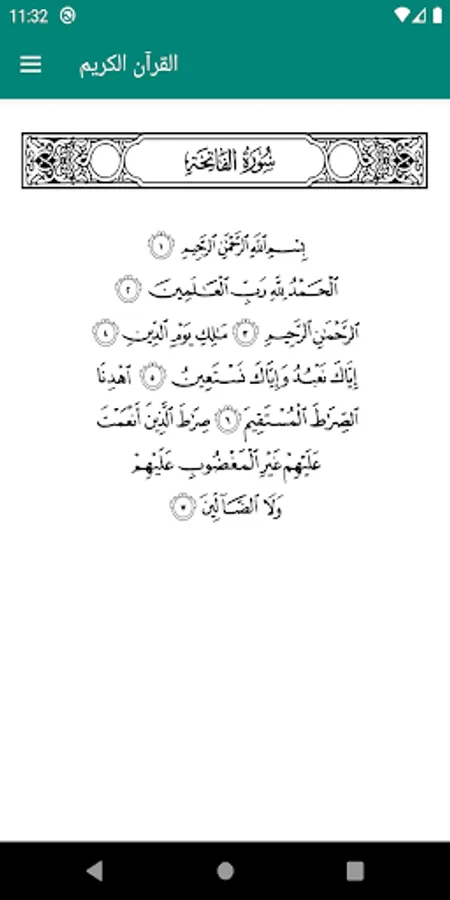 11:32
القرآن الكريم
سُورَةُ الفَاتِحَةِ
بِسْمِ ٱللَّهِ ٱلرَّحْمَٰنِ ٱلرَّحِيمِ ١
ٱلْحَمْدُ لِلَّهِ رَبِّ ٱلْعَٰلَمِينَ ٢
ٱلرَّحْمَٰنِ ٱلرَّحِيمِ ٣ مَٰلِكِ يَوْمِ ٱلدِّينِ ٤
إِيَّاكَ نَعْبُدُ وَإِيَّاكَ نَسْتَعِينُ ٥ ٱهْدِنَا
ٱلصِّرَٰطَ ٱلْمُسْتَقِيمَ ٦ صِرَٰطَ ٱلَّذِينَ أَنْعَمْتَ
عَلَيْهِمْ غَيْرِ ٱلْمَغْضُوبِ عَلَيْهِمْ
وَلَا ٱلضَّآلِّينَ ٧